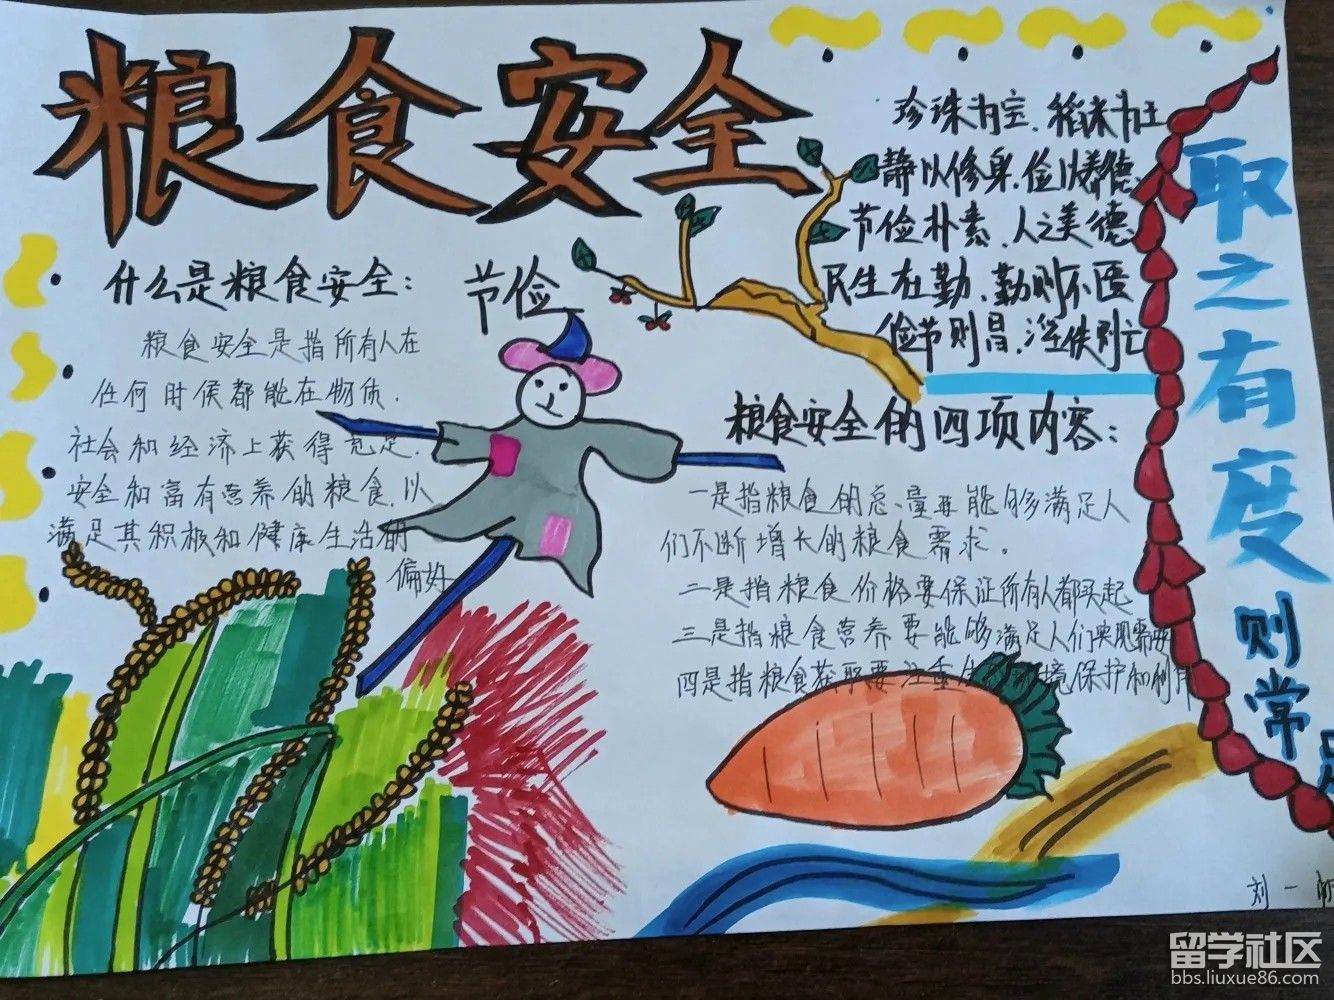 粮食安全
什么是粮食安全：
粮食安全是指所有人在
任何时候都能在物质.
社会和经济上获得充足.
安全和富有营养的粮食.以
满足其积极和健康生活的
偏好
节俭
珍珠为宝、稻米为王
静以修身.俭以养德、
节俭朴素、人之美德
民生在勤、勤则不匮
俭节则昌、淫佚则亡
粮食安全的四项内容：
一是指粮食的总量要能够满足人
们不断增长的粮食需求。
二是指粮食价格要保证所有人都买起
三是指粮食营养要能够满足人们实现需要
四是指粮食获取要注重生 环境保护和利用
取之有度
则常足
刘一
留学社区
bbs.liuxue86.com